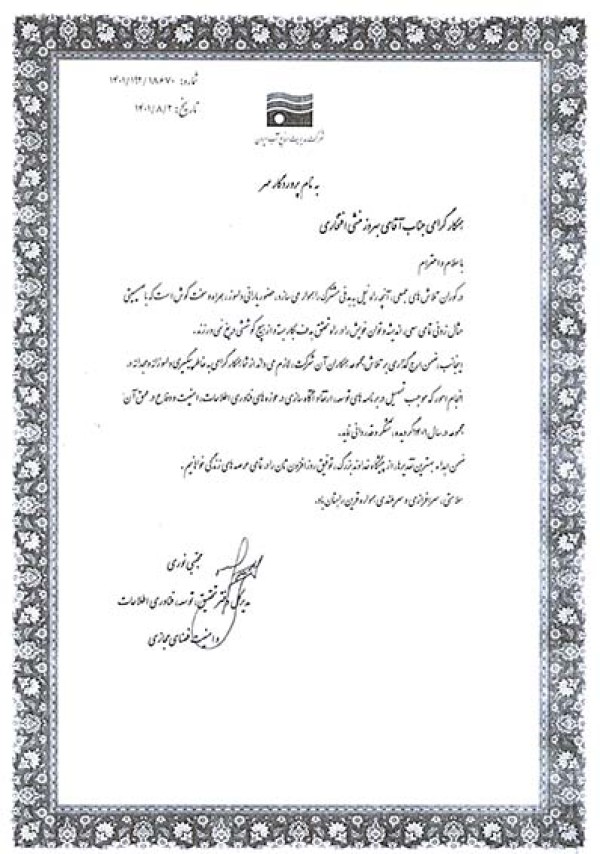 شماره: ۱۴۰۱/۱۹۲/۱۸۶۷۰
تاریخ: ۱۴۰۱/۸/۲
شرکت مدیریت منابع آب ایران
به نام پروردگار مهر
همکار گرامی جناب آقای بهروز منشی افتخاری
با سلام و احترام
در کوران تلاش های جمعی، آنچه راه نیل به هدفی مشترک را هموار می سازد، حضور یارانی دلسوز، همراه و سخت کوش است که با صمیمیتی
مثال زدنی تمامی سعی، اندیشه و توان خویش را در راه تحقق هدف بکار بسته و از هیچ کوششی دریغ نمی ورزند.
اینجانب، ضمن ارج گذاری بر تلاش مجموعه همکاران آن شرکت، لازم می داند از شما همکار گرامی به خاطر پیگیری دلسوزانه و مجدانه در
انجام امور که موجب تسهیل در برنامه های توسعه، ارتقاء و آگاه سازی در حوزه های فناوری اطلاعات، امنیت و دفاع در عمق آن
مجموعه در سال ۱۴۰۱ گردیده، تشکر و قدردانی نماید.
ضمن اهداء بهترین تقدیرها، از پیشگاه خداوند بزرگ، توفیق روز افزون تان را در تمامی عرصه های زندگی خواهانیم.
سلامتی، سرافرازی و سربلندی همواره قرین راهتان باد.
مجتبی نوری
مدیر کل دفتر تحقیق، توسعه، فناوری اطلاعات
و امنیت فضای مجازی